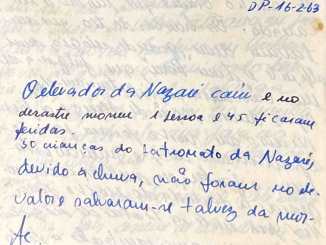 DP-16-2-63
O elevador da Nazaré caiu e no
desastre morreu 1 pessoa e 45 ficaram
feridas.
50 crianças do Patronato da Nazaré,
devido à chuva, não foram no ele-
vador e salvaram-se talvez da mor-
te.